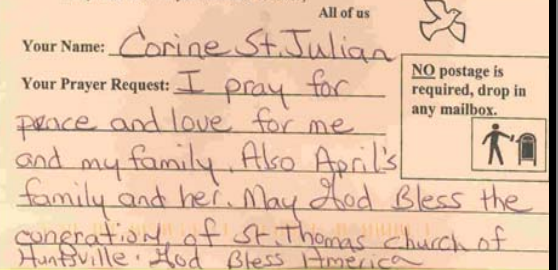 All of us
Your Name: Corine St. Julian
Your Prayer Request: I pray for
peace and love for me
and my family. Also April's
family and her. May God Bless the
congration of St. Thomas church of
Huntsville. God Bless America
NO postage is
required, drop in
any mailbox.